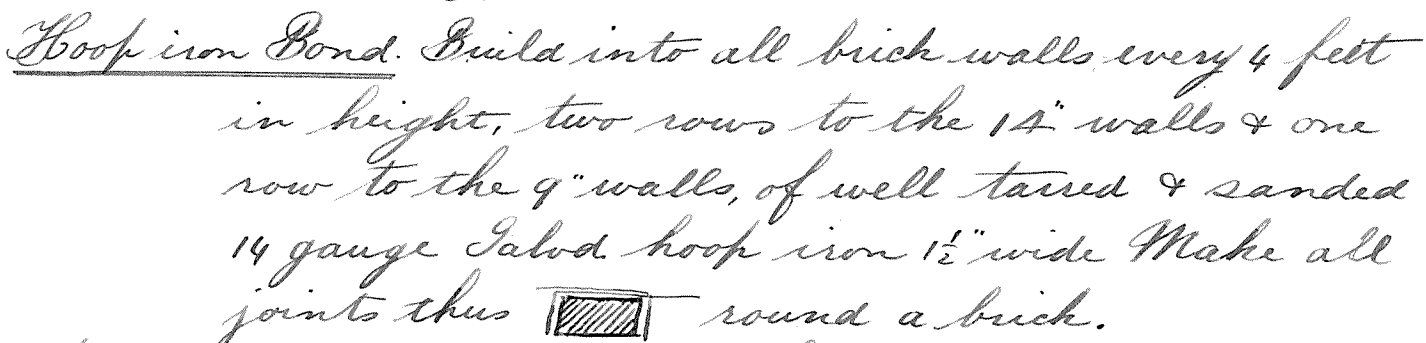 Hoop iron Bond. Build into all brick walls every 4 feet
in height, two rows to the 14" walls & one
row to the 9" walls, of well tarred & sanded
14 gauge Galvd hoop iron 1½" wide Make all
joints thus round a brick.